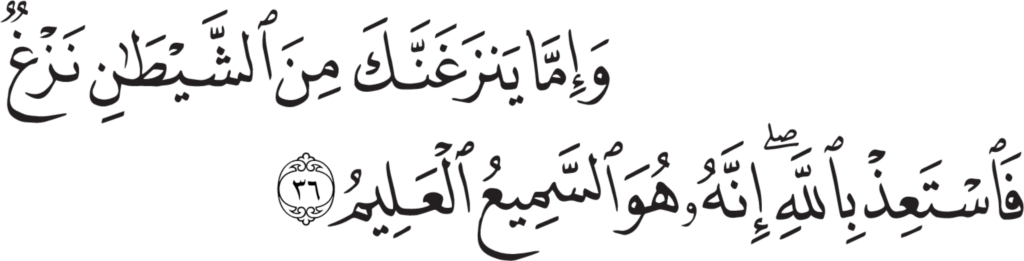 وَإِمَّا يَنزَغَنَّكَ مِنَ ٱلشَّيْطَـٰنِ نَزْغٌ
فَٱسْتَعِذْ بِٱللَّهِ ۖ إِنَّهُۥ هُوَ ٱلسَّمِيعُ ٱلْعَلِيمُ ٣٦